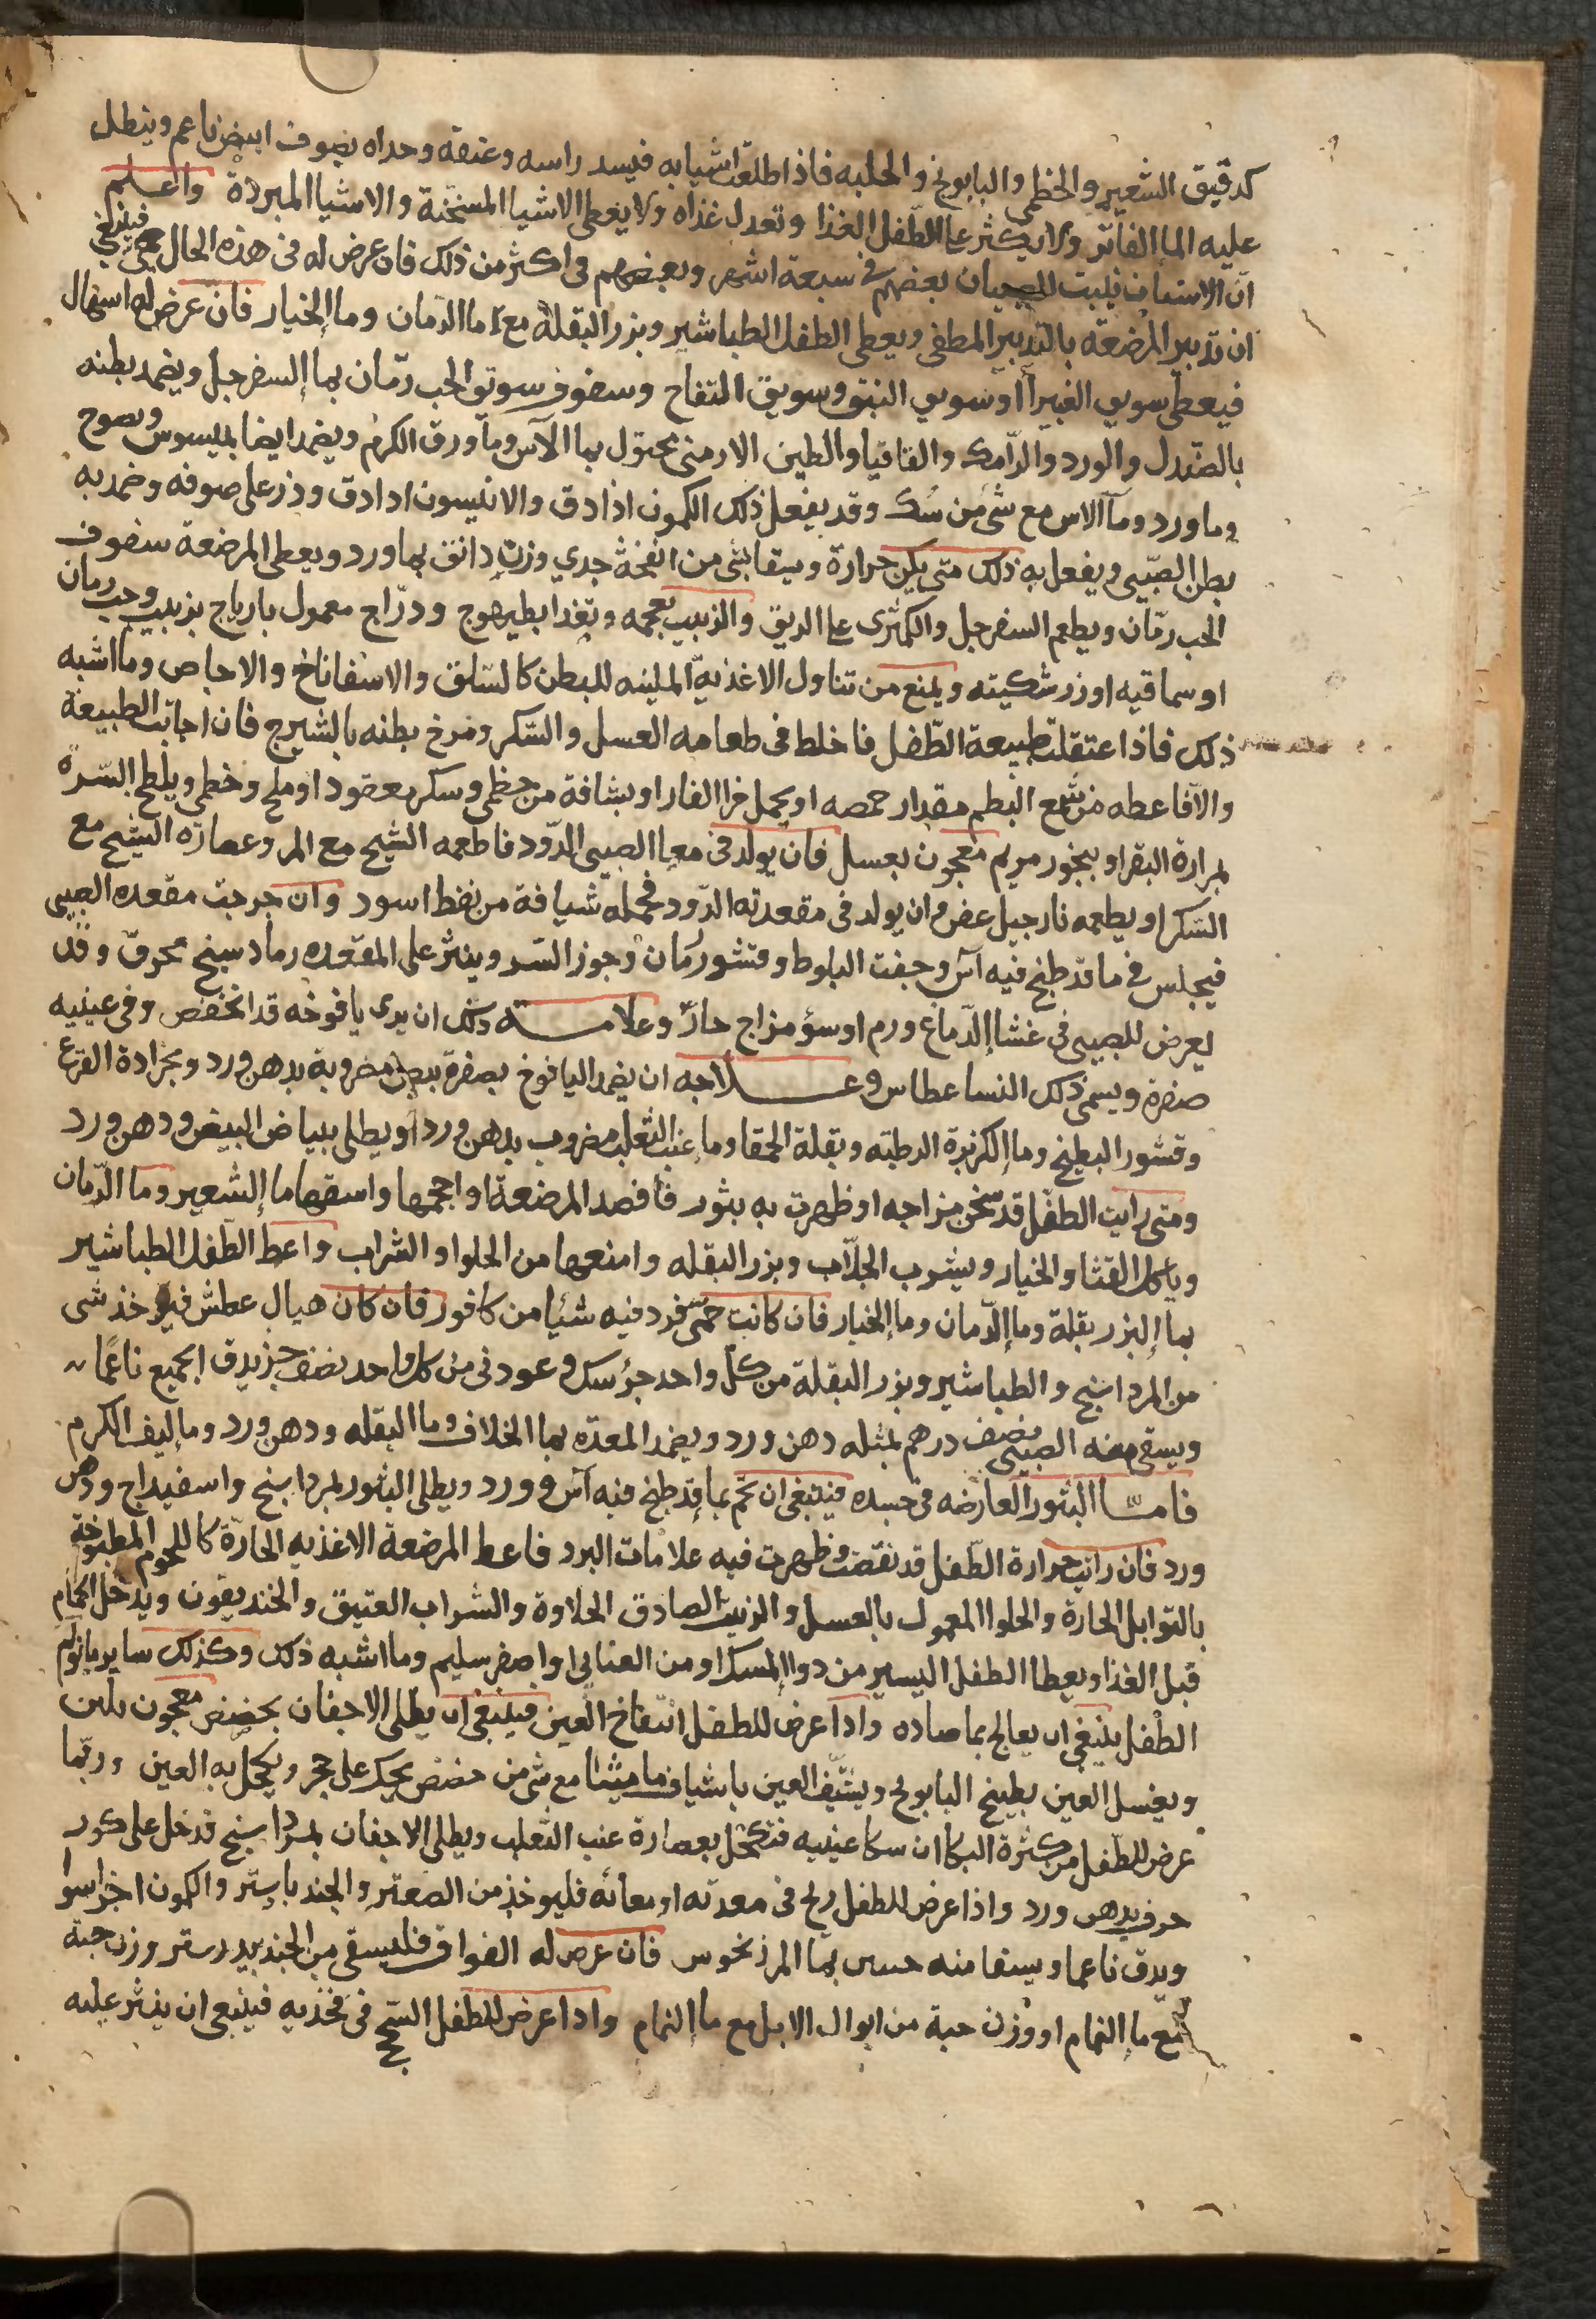 كدقيق الشعير والخطمي والبابونج والحلبه فاذا طلعت اشيابه فيسد راسه وعنقه وحداه بصوف ابيض ناعم وينطل
عليه الما الفاتر ولا يكثر على الطفل الغذا وتعدل غذاه ولا يعطى الاشيا المسخنة والاشيا المبردة واعلم
ان الاسنان تنبت للصبيان بعضهم في سبعة اشهر وبعضهم في اكثر من ذلك فان عرض له في هذه الحال حمى فينبغي
ان تدبير المرضعة بالتدبير المطفى ويعطى الطفل الطباشير وبزر البقلة مع ما الرمان وما الخيار فان عرض له اسهال
فيعطى سويق الغبيرا او سويق النبق وسويق التفاح وسفوف سوتق الحب رمان بما السفرجل ويضمد بطنه
بالصندل والورد والرامك والقاقيا والطين الارمنى محتول بما الآس وما ورق الكرم ويضمد ايضا بميسوس ونضوح
وما ورد وما الاس مع شئ من سك وقد يفعل ذلك الكمون اذا دق والانيسون اذا دق وذر على صوفه وضمد به
بطن الصبي ويفعل به ذلك متى يكن حرارة ويسقا بشى من انفحة جدي وزن دانق بما ورد ويعطى المرضعة سفوف
الحب رمان ويطعم السفرجل والكمثرى على الريق والزبيب بعجمه وتغذا بطيهوج ودراج معمول بارباج بزبيب وحب رمان
او سماقيه او زرشكيته ويمنع من تناول الاغذية الملينه للبطن كالسلق والاسفاناخ والاجاص وما اشبه
ذلك فاذا اعتقلت طبيعة الطفل فاخلط في طعامه العسل والسكر ومرخ بطنه بالشيرج فان اجابت الطبيعة
والا فاعطه من شمع البطم مقدار حمصه او يحمل خرا الفار او بشافة من خطمى وسكر معقود او ملح وخطمى ويلطخ السرة
بمرارة البقر او ببخور مريم معجون بعسل فان يولد في معا الصبي الدود فاطعمه الشيح مع المر وعصارة الشيح مع
السكر او يطعمه نارجيل عض وان يولد في مقعدته الدود فحمله شيافة من نفط اسود وان خرجت مقعده الصبى
فيجلس في ما قد طبخ فيه آس وجفت البلوط وقشور رمان وجوز السر وينثر على المقعده رماد سبنج محرق وقد
يعرض للصبى في غشا الدماغ ورم او سؤ مزاج حار وعلامة ذلك ان يرى يافوخه قد انخفض وفي عينيه
صفرة ويسمى ذلك النسا عطاس وعلاجه ان يضمد اليافوخ بصفرة بيض مضروبة بدهن ورد وبجرادة القرع
وقشور البطيخ وما الكزبرة الرطبته وبقلة الحمقا وما عنب الثعلب مضروب بدهن ورد او يطلى ببياض البيض ودهن ورد
ومتى رايت الطفل قد سخن مزاجه او ظهرت به بثور فافصد المرضعة او احجمها واسقها ما الشعير وما الرمان
وياكل القثا والخيار ويشرب الجلاب وبزر البقله وامنعها من الحلوا والشراب واعط الطفل الطباشير
بما البزر بقلة وما الرمان وما الخيار فان كانت حمى فزد فيه شئيا من كافور فان كان هيال عطش فيوخذ شى
من المرداسنج والطباشير وبزر البقلة من كل واحد جزؤ سك وعود نى من كل واحد نصف جز يدق الجميع ناعما
ويسقى منه الصبي نصف درهم بمثله دهن ورد ويضمد المعده بما الخلاف وما البقله ودهن ورد وما ليف الكرم
فاما البثور العارضه في جسده فينبغى ان تحم بما قد طبخ فيه آس وورد ويطلى البثور بمرداسنج واسفيداج ودهن
ورد فان رايت حرارة الطفل قد نقصت وظهرت فيه علامات البرد فاعط المرضعة الاغذيه الحارة كاللحوم المطبوخة
بالتوابل الحارة والحلوا المعمول بالعسل والزبيب الصادق الحلاوة والشراب العتيق والخنديقون ويدخل الحمام
قبل الغذا ويعطا الطفل اليسير من دوا المسك او من العنابى او اصفر سليم وما اشبه ذلك وكذلك ساير ما يولم
الطفل ينبغى ان يعالج بما ضاده واذا عرض للطفل انتفاخ العين فينبغى ان يطلى الاجفان بحضض معجون بلبن
ويغسل العين بطبيخ البابونج ويشيف العين باشياف ماميثا مع شى من حضض يحك على حجر ويكحل به العين وربما
عرض للطفل من كثرة البكا ان سكا عينيه فتكحل بعصارة عنب الثعلب ويطلى الاجفان بمرداسنج قد خل على كور
حرف بدهن ورد واذا عرض للطفل ريح في معدته او معائه فليوخذ من الصعتر والجندباستر والكمون اجزا سوا
ويدق ناعما ويسقا منه حبتين بما المرزنخوس فان عرض له الفواق فليسقى من الجندبيدرستر وزن حبة
مع ما النمام او وزن حبة من ابوال الابل مع ما النمام واذا عرض للطفل السحج في فخذيه فينبغى ان ينثر عليه